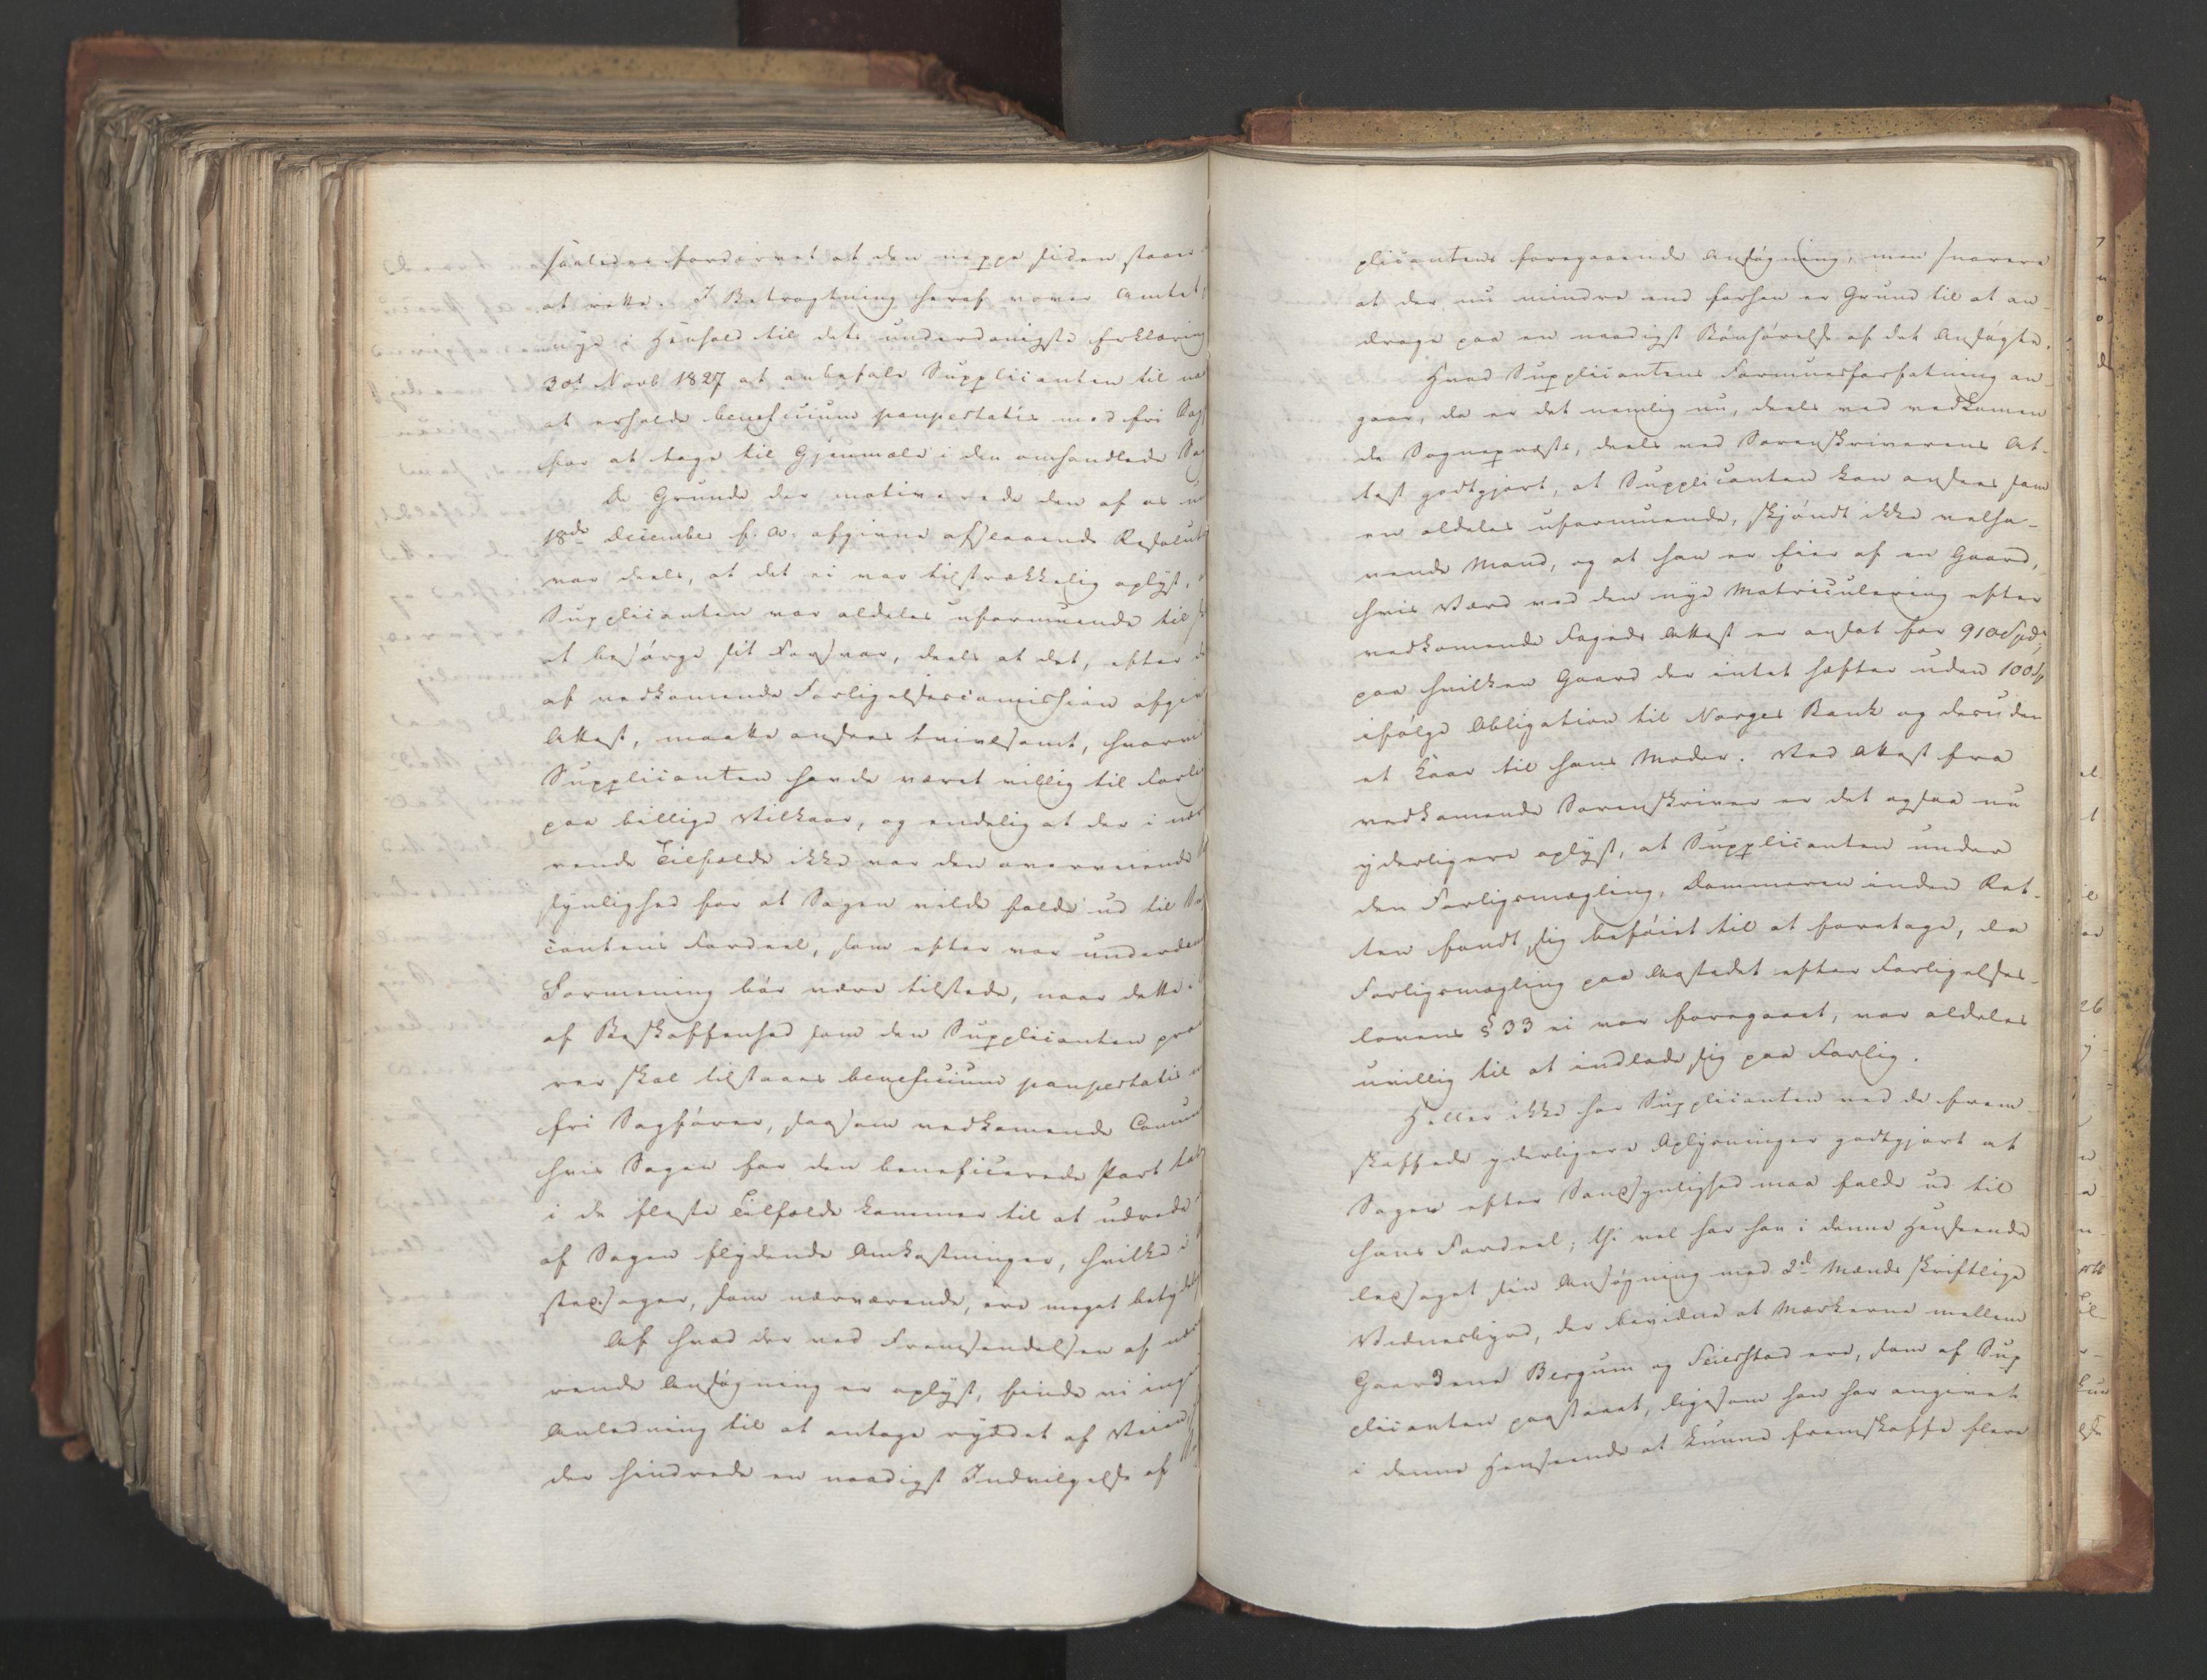 saaledes fordærvet at den neppe siden staaer
at rette. I Betragtning heraf vover Amtet,
nye i Henhold til dets underdanigste Erklæring
30t Novb 1827 at anbefale Supplicanten til na
at erholde beneficium paupertatis med fri Sag
for at tage til Gjenmæle i den omhandlede Sa
De Grunde der motiverede den af os u
18de December f. A. afgivne afslaaende Resolut
var deels, at det ei var tilstrækkelig oplyst,
Supplicanten var aldeles uformuende til
at besørge sit Forsvar, deels at det, efter d
af vedkomende Forligelsescomission afgiv
Attest, maatte ansees tvivlsomt, hvorvi
Supplicanten havde været villig til Forli
paa billige Vilkaar, og endelig at der i nær
rende Tilfælde ikke var den overveiende
synlighed for at Sagen vilde falde ud til Su
cantens Fordeel, som efter vor underdan
Formening bør være tilstede, naar dette i
af Beskaffenhed som den Supplicanten præ
ver skal tilstaaes beneficium paupertatis m
fri Sagfører, saasom vedkomende Comun
hvis Sagen for den beneficerede Part tab
i de fleste Tilfælde kommer til at udrede
af Sagen flydende Omkostninger, hvilke i
stedsager, som nærværende, ere meget betyde
Af hvad der ved Fremsendelsen af nær
rende Ansøgning er oplyst, finde vi inge
Anledning til at antage ryddet af Veien,
der hindrede en naadigst Indvilgelse af
plicantens foregaaende Ansøgning, men snarere
at der nu mindre end forhen er Grund til at an-
drage paa en naadigst Bønhørelse af det Ansøgte.
Hvad Supplicantens Formuesforfatning an-
gaar, da er det nemlig nu, deels ved vedkomen
de Sognepræsts, deels ved Sorenskriverens At-
test godtgjort, at Supplicanten kan ansees som
en aldeles uformuende, skjøndt ikke velha-
vende Mand, og at han er Eier af en Gaard,
hvis Værd ved den nye Matriculering efter
vedkomende Fogeds Attest er ansat for 910 Spd,
paa hvilken Gaard der intet hæfter uden 100 Sp
ifølge Obligation til Norges Bank og desuden
et Kaar til hans Moder. Ved Attest fra
vedkomende Sorenskriver er det ogsaa nu
yderligere oplyst, at Supplicanten under
den Forligsmægling, Dommeren inden Ret-
ten fandt sig beføiet til at foretage, da
Forligsmægling paa Aastedet efter Forligelses-
lovens § 33 ei var foregaaet, var aldeles
uvillig til at indlade sig paa Forlig.
Heller ikke har Supplicanten ved de frem-
skaffede yderligere Oplysninger godtgjort at
Sagen efter Sandsynlighed maa falde ud til
hans Fordeel; thi vel har han i denne Henseende
ledsaget sin Ansøgning med 2de Mænds skriftlige
Vidnesbyrd, der bevidne at Mærkerne mellem
Gaardene Bergum og Feierstad ere, som af Sup
plicanten paastaaet, ligesom han har angivet
i denne Henseende at kunne fremskaffe flere